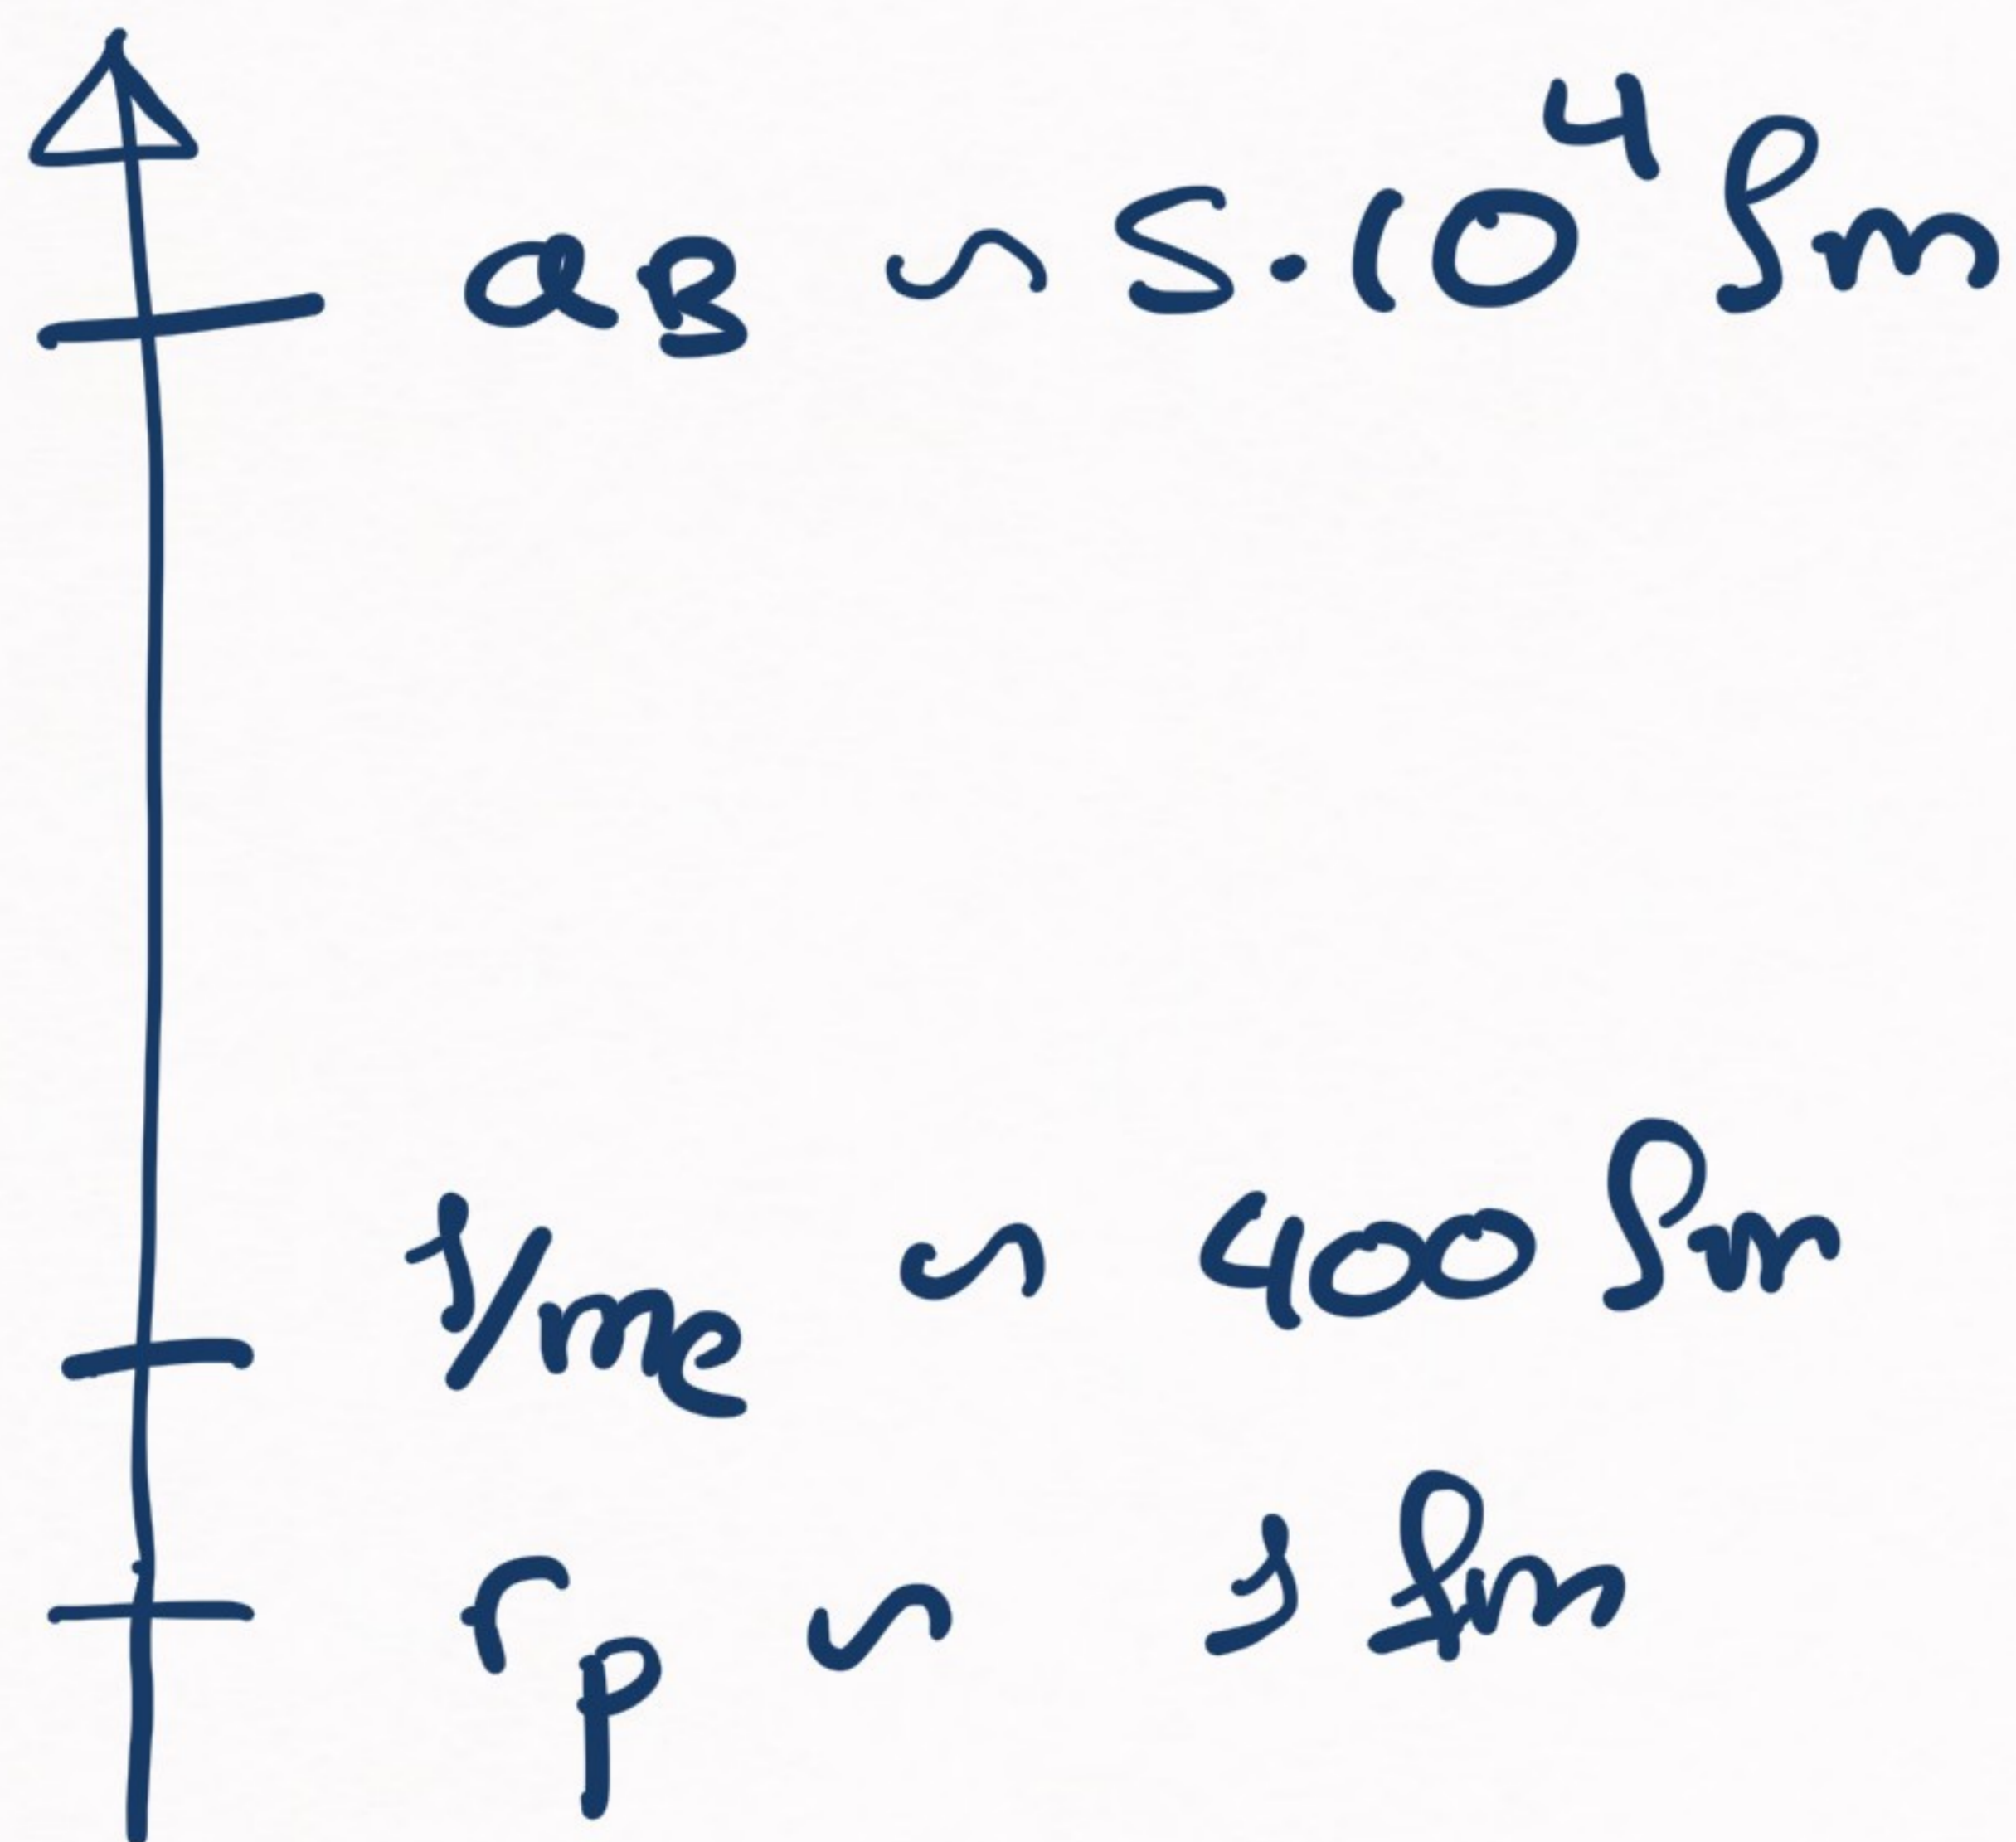 aB ~ 5·10⁴ fm
1/me ~ 400 fm
rp ~ 1 fm